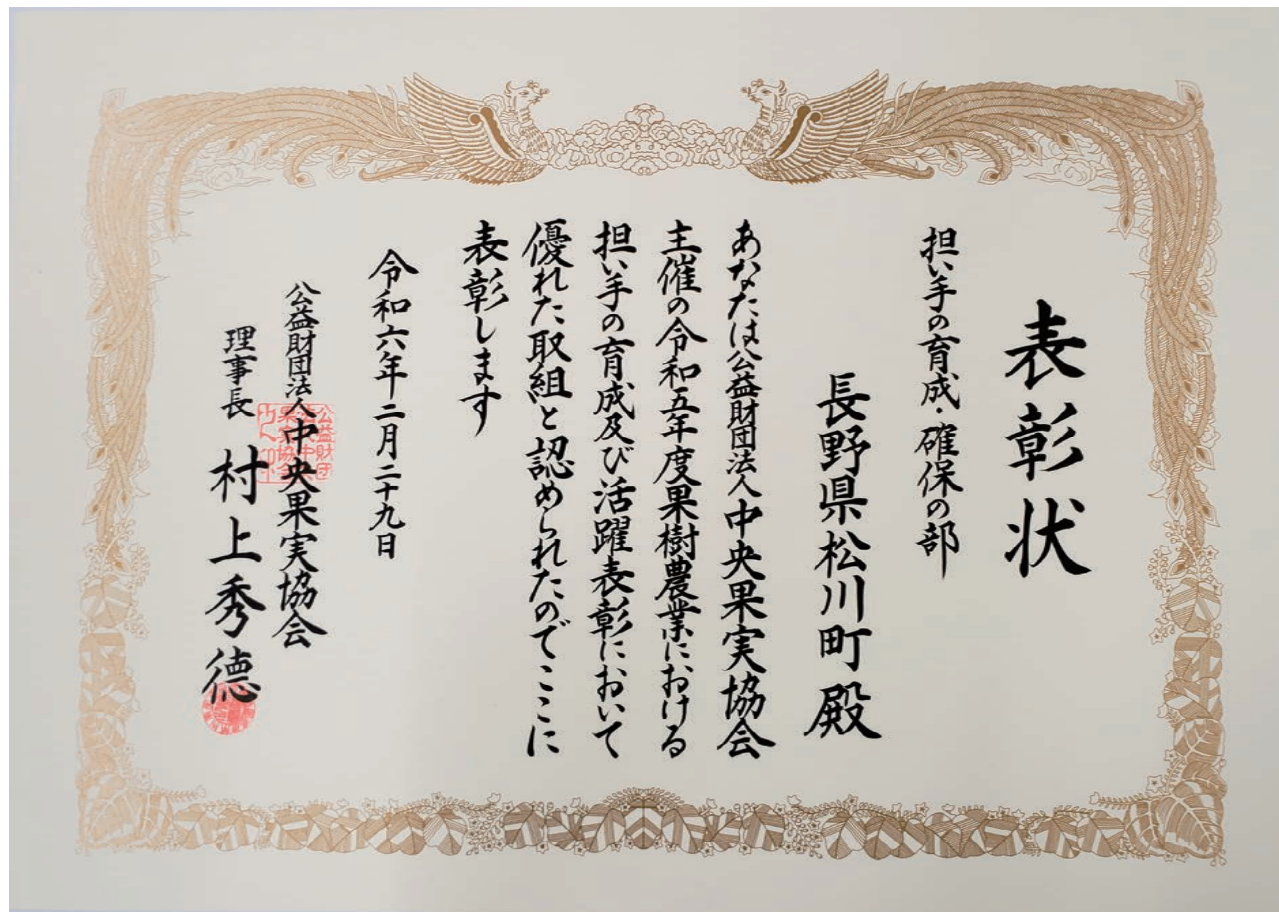 表彰状
担い手の育成・確保の部
長野県松川町殿
あなたは公益財団法人中央果実協会
主催の令和五年度果樹農業における
担い手の育成及び活躍表彰において
優れた取組と認められたのでここに
表彰します
令和六年二月二十九日
公益財団法人中央果実協会
理事長 村上秀德